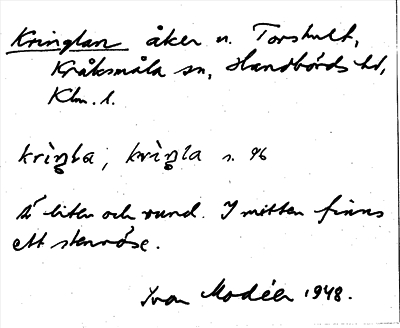 Kringlan åker n. Torshult,
Kråksmåla sn, Handbörds hd,
Klm. l.
krìŋla, krìŋla s. 96
Ä liten och rund. I mitten finns
ett stenröse.
Ivar Modéer 1948.